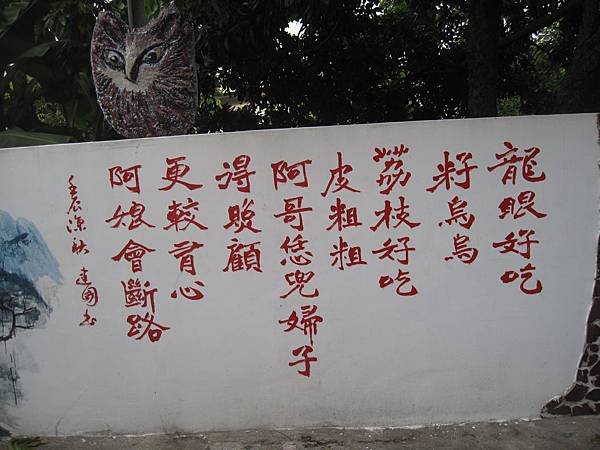 龍眼好吃
籽烏烏
荔枝好吃
皮粗粗
阿哥恁兜婦子
得照顧
更較有心
阿娘會斷路
壬辰深秋 建國書